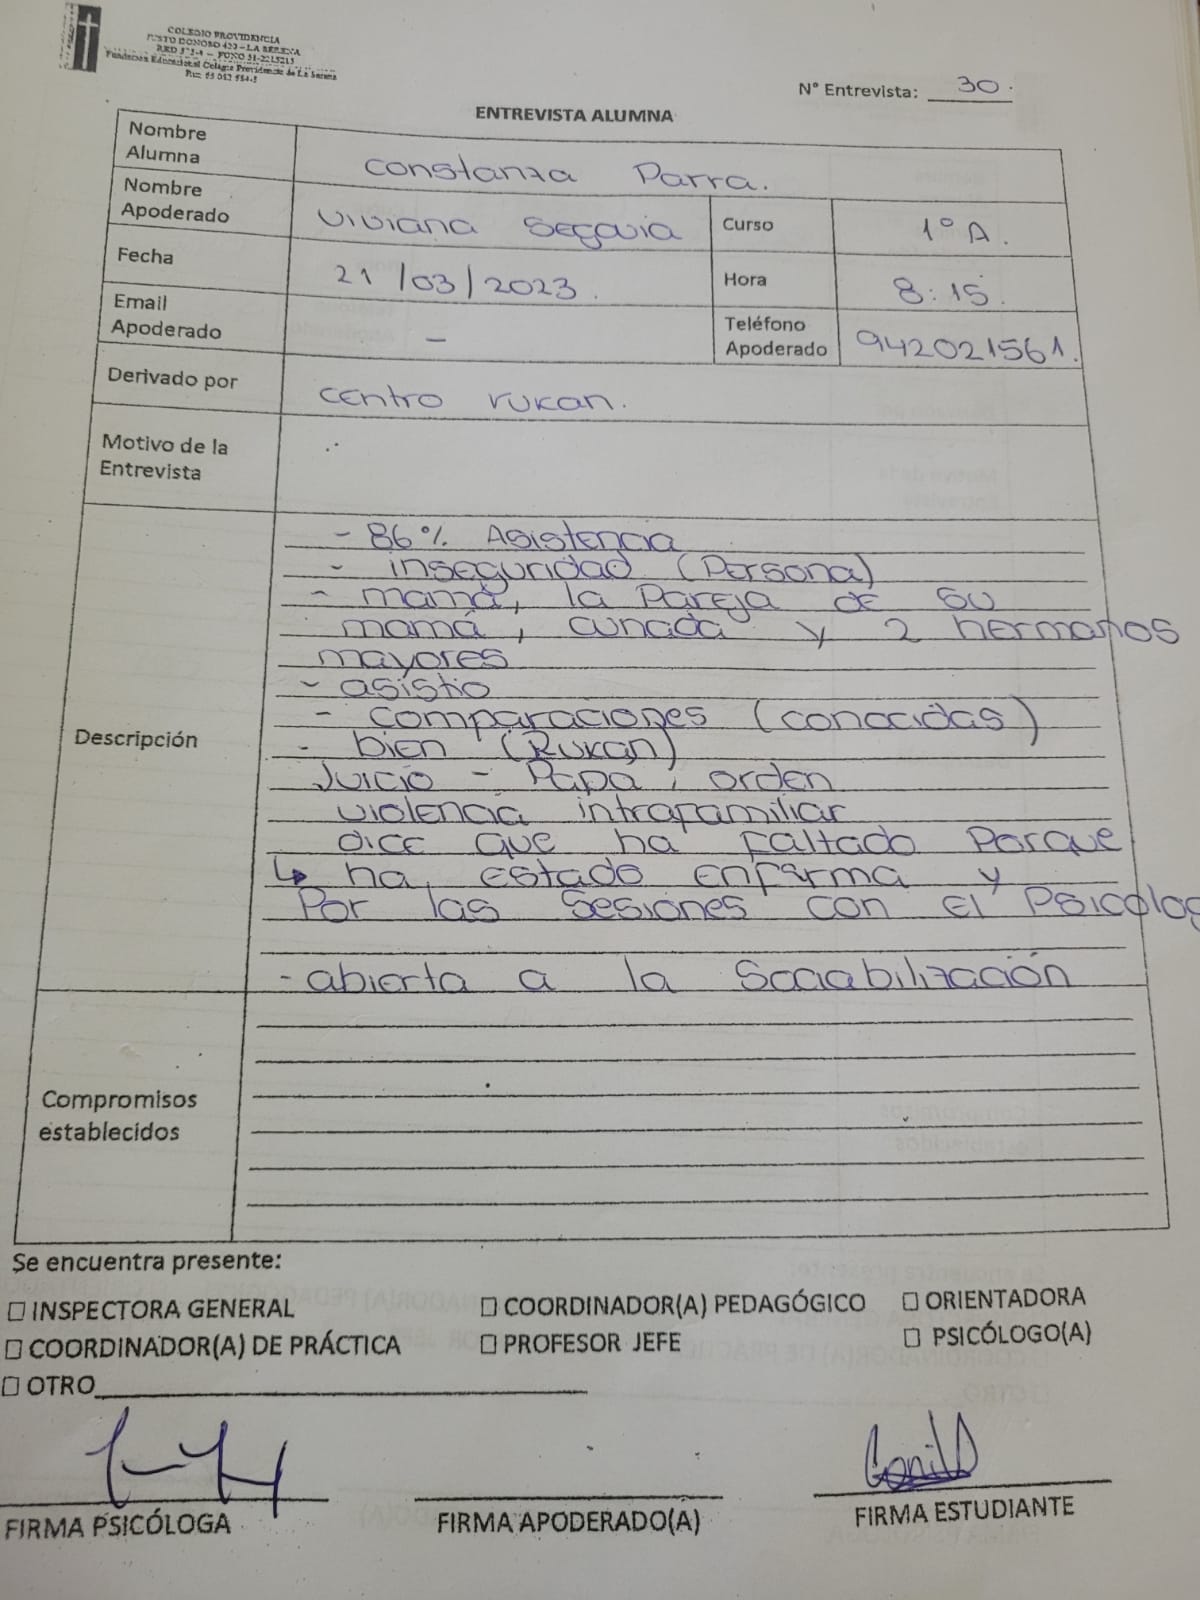 COLEGIO PROVIDENCIA
JUSTO DONOSO 420 – LA SERENA
Fundación Educacional Colegio Providencia de La Serena
N° Entrevista: 30.
ENTREVISTA ALUMNA
Nombre
Alumna
Constanza Parra.
Nombre
Apoderado
Viviana Segovia
Curso
1° A.
Fecha
21/03/2023.
Hora
8:15.
Email
Apoderado
-
Teléfono
Apoderado
942021561.
Derivado por
centro rukan.
Motivo de la
Entrevista
Descripción
- 86% Asistencia
- inseguridad (Persona)
- mamá, la Pareja de su
mamá, cunada y 2 hermanos
mayores
- asistio
- comparaciones (conocidas)
- bien (Rukan)
Juicio - Papa, orden
violencia intrafamiliar
dice que ha Faltado Porque
↳ ha estado enferma y
Por las Sesiones con el Psicolog
- abierta a la Sociabilización
Compromisos
establecidos
Se encuentra presente:
☐ INSPECTORA GENERAL ☐ COORDINADOR(A) PEDAGÓGICO ☐ ORIENTADORA
☐ COORDINADOR(A) DE PRÁCTICA ☐ PROFESOR JEFE ☐ PSICÓLOGO(A)
☐ OTRO
FIRMA PSICÓLOGA FIRMA APODERADO(A) FIRMA ESTUDIANTE